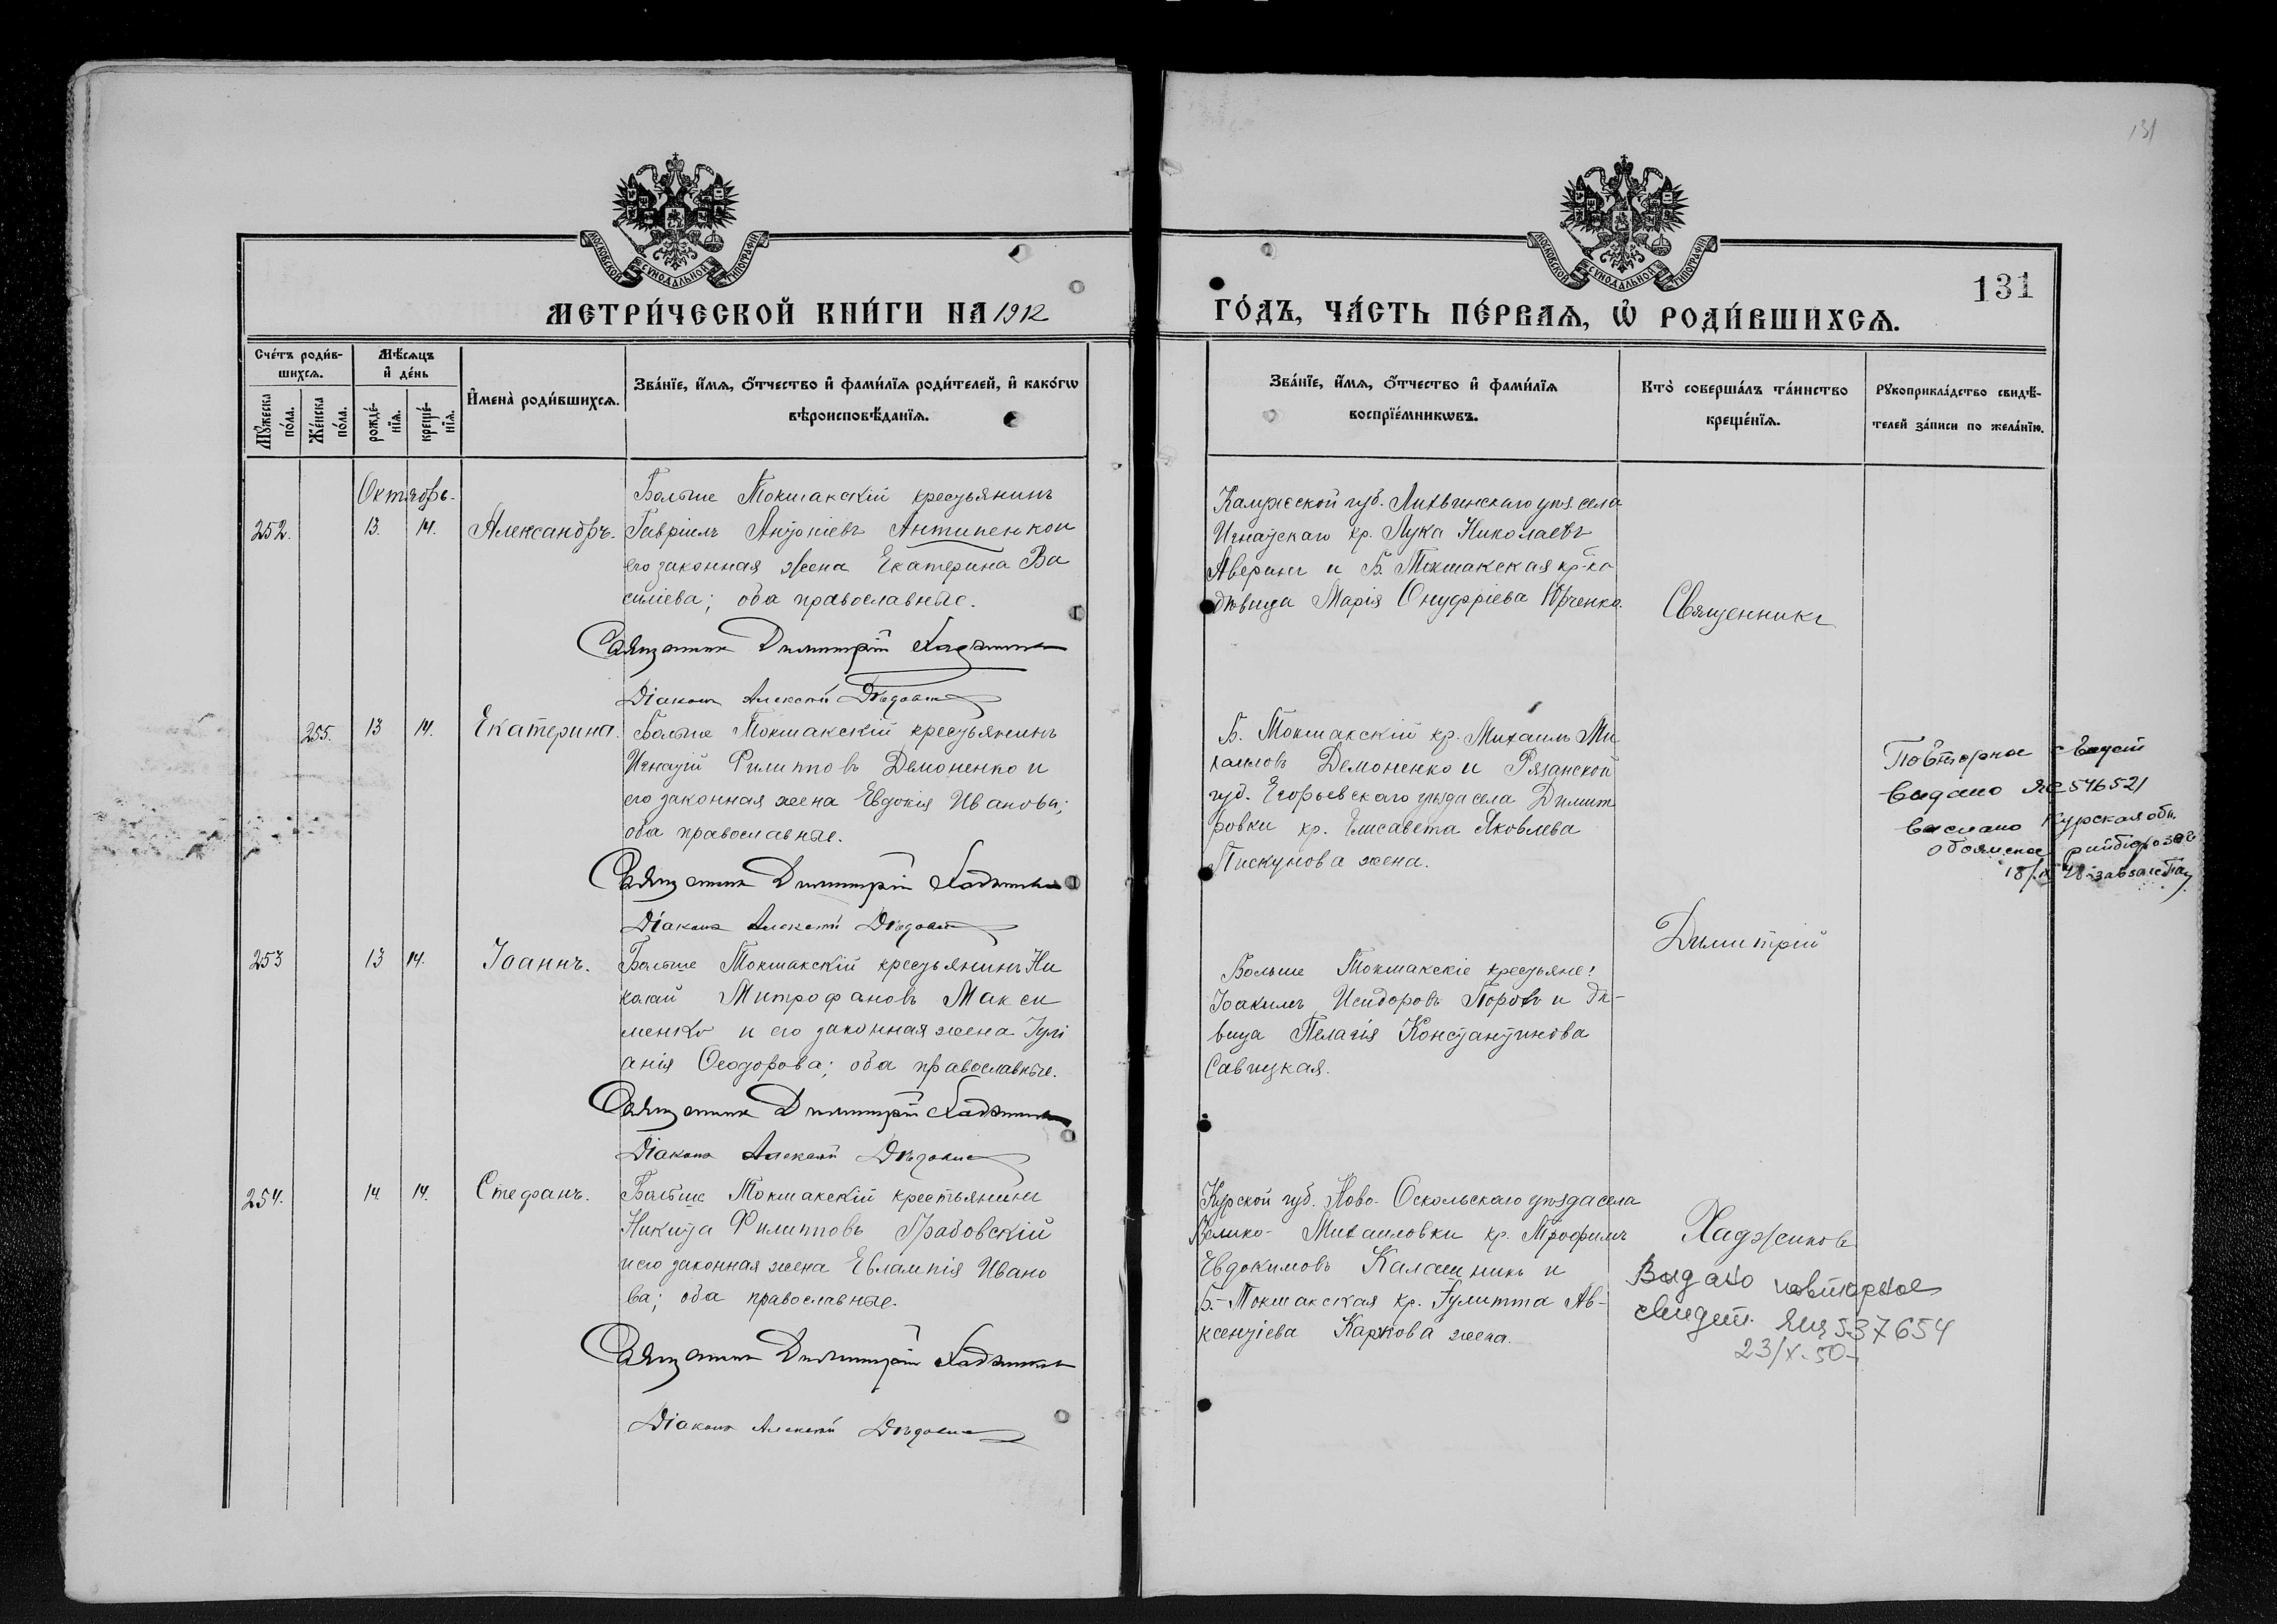 131
МОСКОВСКОЙ СѴНОДАЛЬНОЙ ТИПОГРАФІИ
МОСКОВСКОЙ СѴНОДАЛЬНОЙ ТИПОГРАФІИ
131
МЕТРИ́ЧЕСКОЙ КНИ́ГИ НА 1912
ГО́ДЪ, ЧА́СТЬ ПЕ́РВАѦ, Ѡ҆ РОДИ́ВШИХСѦ.
Сче́тъ роди́в-
шихсѧ.
Мѣ́сѧцъ
и҆ де́нь
И҆мена̀ роди́вшихсѧ.
Зва́нїе, и҆́мѧ, о҆́тчество и҆ фами́лїѧ роди́телей, и҆ како́гѡ
вѣроисповѣ́данїѧ.
Мꙋ́жеска
по́ла.
Же́нска
по́ла.
рожде́-
нїѧ.
креще́-
нїѧ.
Зва́нїе, и҆́мѧ, о҆́тчество и҆ фами́лїѧ
воспрїе́мникѡвъ.
Кто̀ соверша́лъ та́инство
креще́нїѧ.
Рꙋкоприкла́дство свидѣ́-
телей за́писи по жела́нїю.
Октябрь.
252. 13. 14. Александръ.
Больше Токмакскій крестьянинъ
Гавріилъ Антоніевъ Антипенко и
его законная жена Екатерина Ва
силіева; оба православные.
Священникъ Димитрій Хаджиновъ
Діаконъ Алексій Дѣдовичъ
Калужской губ. Лихвинскаго уѣз. села
Игнатскаго кр. Лука Николаевъ
Аверинъ и Б. Токмакская кр-ка
дѣвица Марія Онуфріева Юрченко.
Священникъ
255. 13 14. Екатерина.
Больше Токмакскій крестьянинъ
Игнатій Филипповъ Демоненко и
его законная жена Евдокія Иванова;
оба православные.
Священникъ Димитрій Хаджиновъ
Діаконъ Алексій Дѣдовичъ
Б. Токмакскій кр. Михаилъ Ми
хаиловъ Демоненко и Рязанской
губ. Егорьевскаго уѣзда села Димит
ровки кр. Елисавета Яковлева
Пискунова жена.
Повторное свидет
видано ЯЕ 546521
выслано Курская обл.
18/IX 48
Димитрій
253 13 14. Іоаннъ.
Больше Токмакскій крестьянинъ Ни
колай Митрофановъ Макси
менко и его законная жена Іулі
анія Ѳеодорова; оба православные.
Священникъ Димитрій Хаджиновъ
Діаконъ Алексій Дѣдовичъ
Больше Токмакскіе крестьяне:
Іоакимъ Исидоровъ Поровъ и дѣ-
вица Пелагія Константинова
Савицкая.
254. 14 14. Стефанъ.
Больше Токмакскій крестьянинъ
Никита Филипповъ Грабовскій
и его законная жена Евлампія Ивано
ва; оба православные.
Священникъ Димитрій Хаджиновъ
Діаконъ Алексій Дѣдовичъ
Курской губ. Ново-Оскольскаго уѣзда села
Велико-Михаиловки кр. Трофимъ
Евдокимовъ Калашникъ и
Б.-Токмакская кр. Іулитта Ав-
ксентіева Каркова жена.
Хаджиновъ
Видано повторное
свидет. 537654
23/X-50